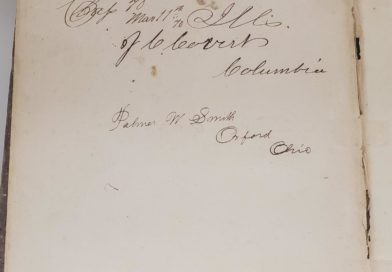 Mar 11th 70 Ills.
of C Covert
Columbia
Palmer W Smith
Oxford
Ohio